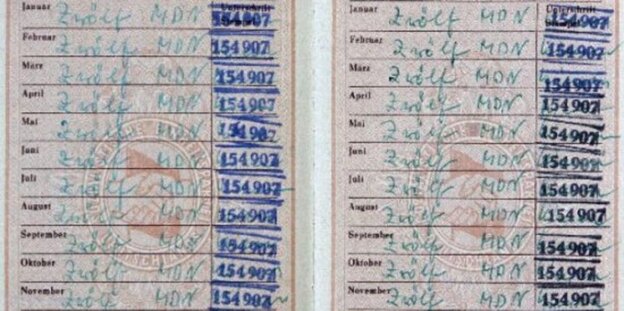 Januar Zwölf MDN Unterschrift 154907
Februar Zwölf MDN 154907
März Zwölf MDN 154907
April Zwölf MDN 154907
Mai Zwölf MDN 154907
Juni Zwölf MDN 154907
Juli Zwölf MDN 154907
August Zwölf MDN 154907
September Zwölf MDN 154907
Oktober Zwölf MDN 154907
November Zwölf MDN 154907
Januar Zwölf MDN Unterschrift 154907
Februar Zwölf MDN 154907
März Zwölf MDN 154907
April Zwölf MDN 154907
Mai Zwölf MDN 154907
Juni Zwölf MDN 154907
Juli Zwölf MDN 154907
August Zwölf MDN 154907
September Zwölf MDN 154907
Oktober Zwölf MDN 154907
November Zwölf MDN 154907